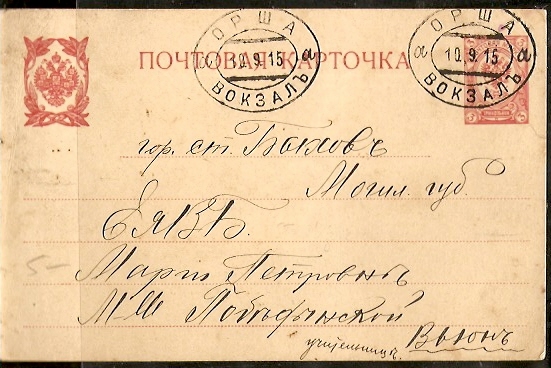 ОРША
а 10.9.15 а
ВОКЗАЛЪ
ОРША
а 10.9.15 а
ВОКЗАЛЪ
ПОЧТОВАЯ КАРТОЧКА
гор. ст. Быховъ
Могил. губ.
ЕЯВБ.
Маріи Петровнѣ
учительницѣ. Вьюнъ